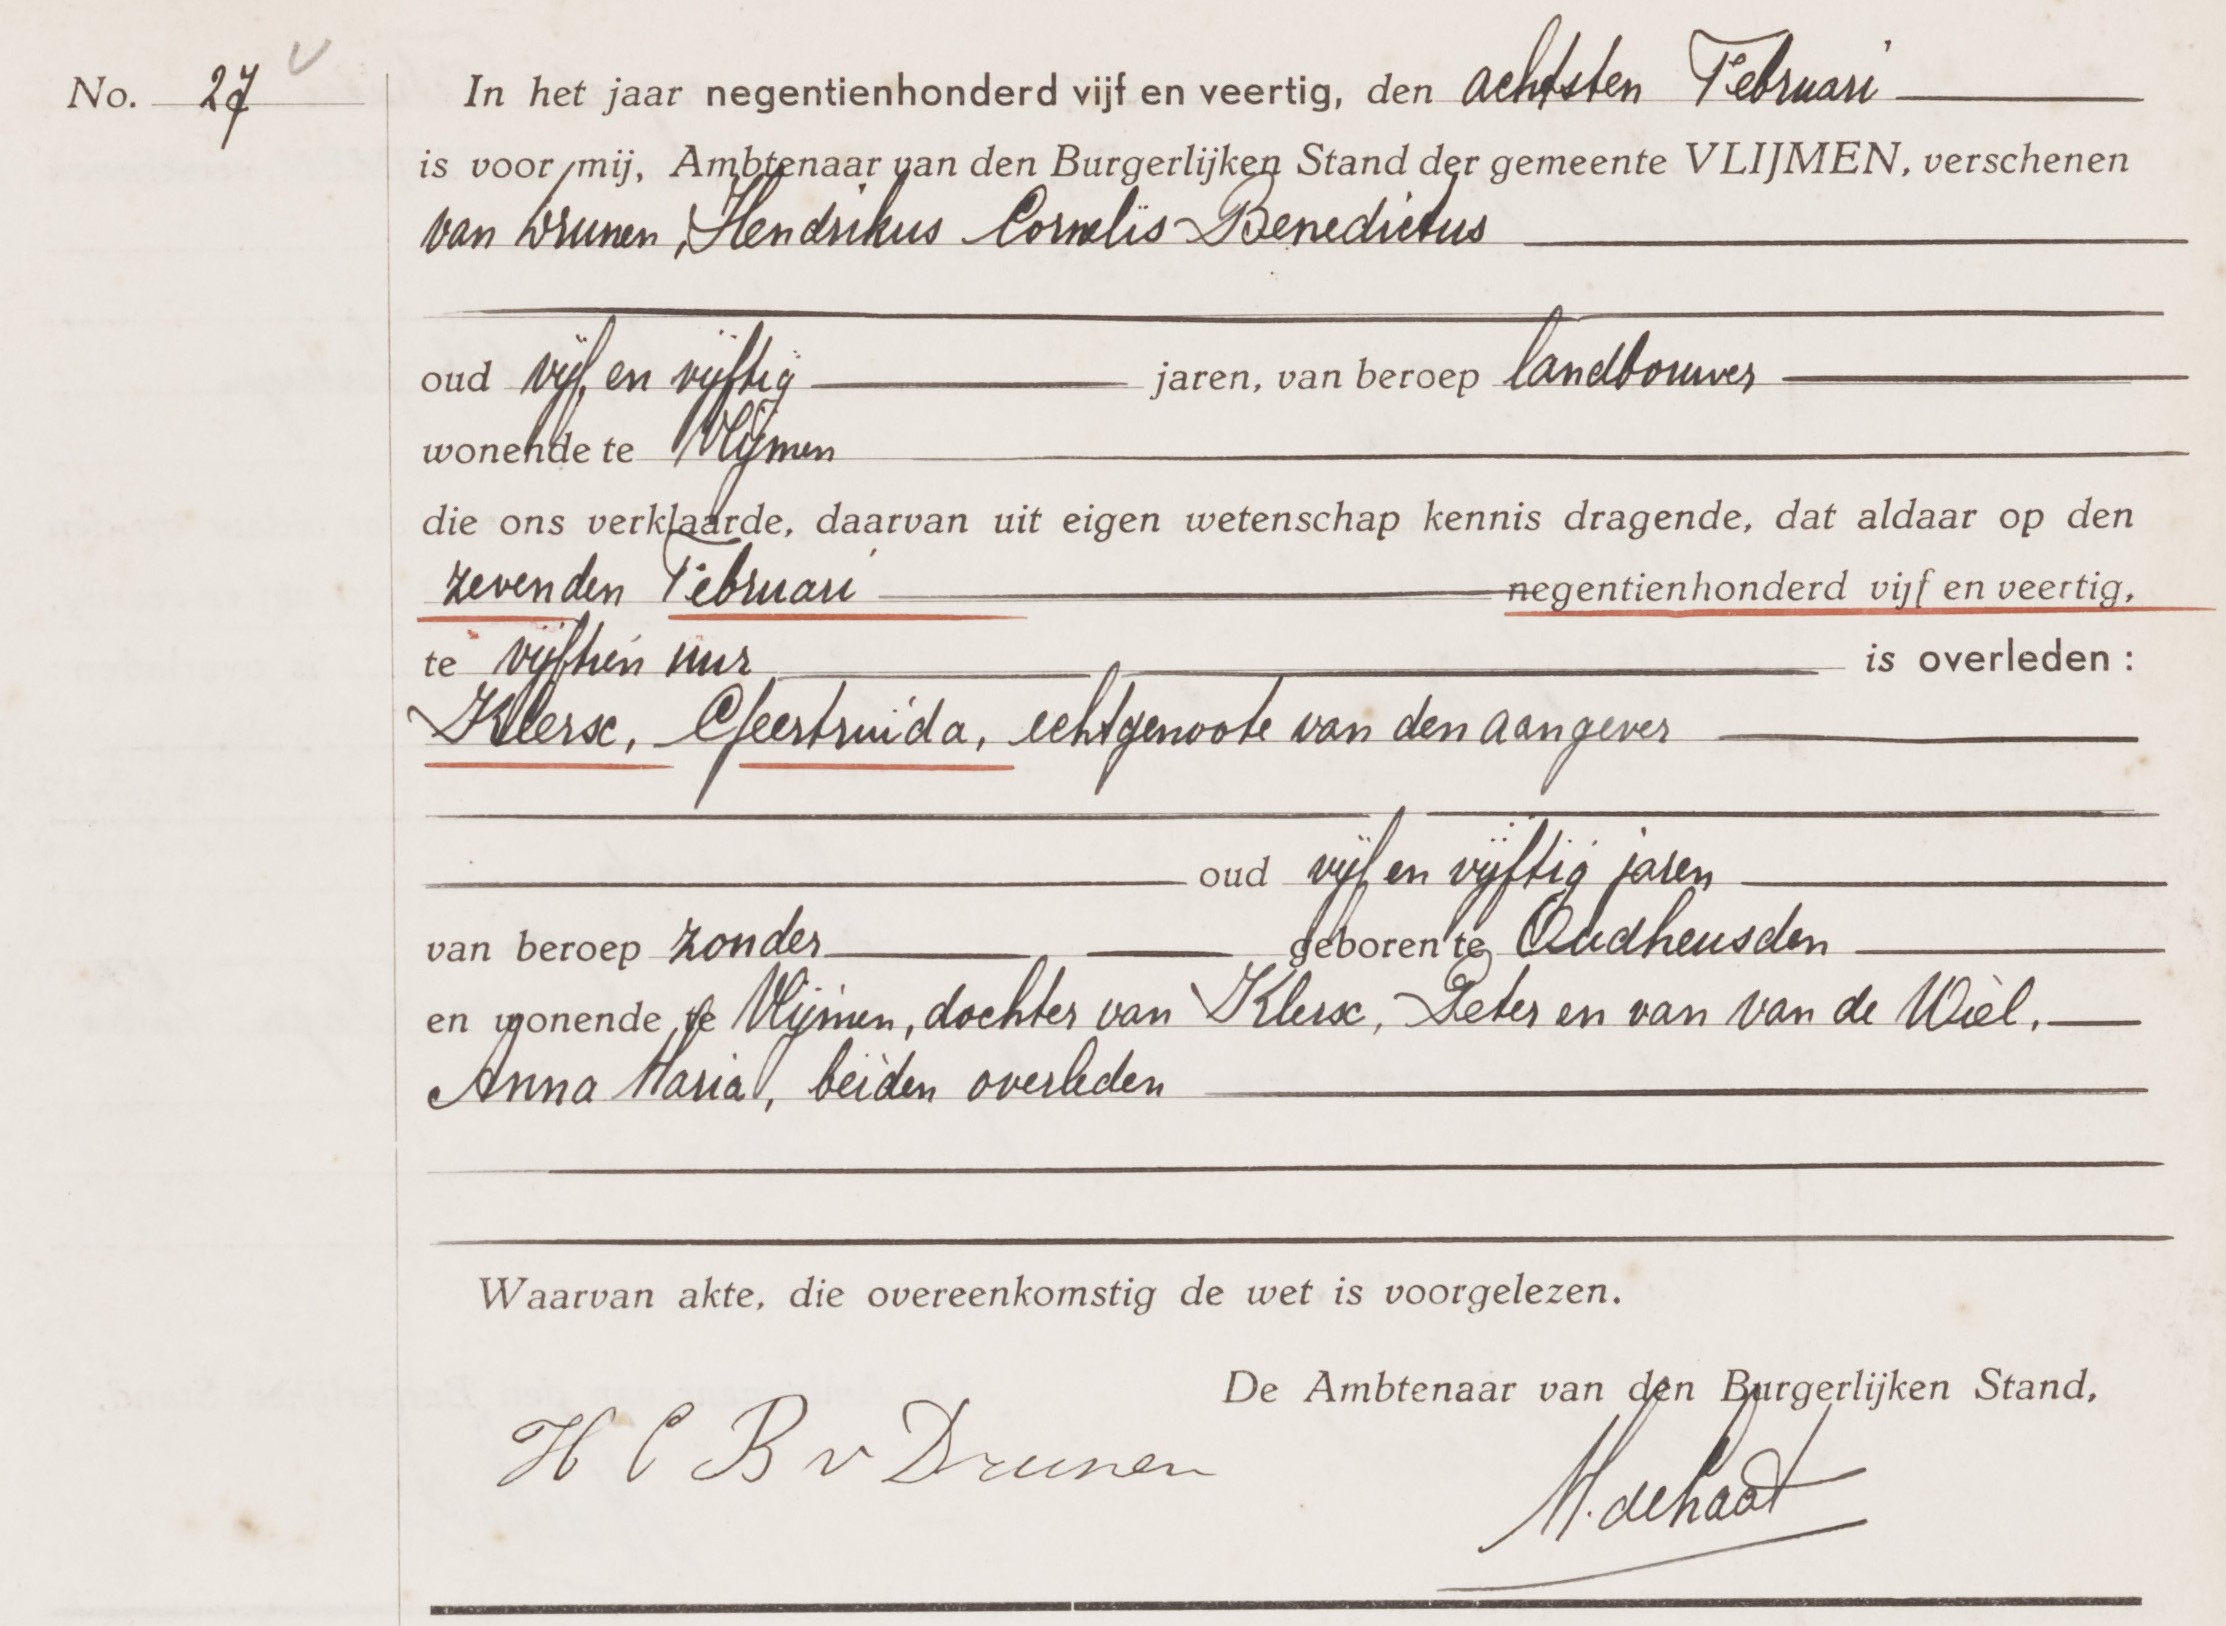 No. 27
In het jaar negentienhonderd vijf en veertig, den achtsten Februari
is voor mij, Ambtenaar van den Burgerlijken Stand der gemeente VLIJMEN, verschenen
van Drunen, Hendrikus Cornelis Benedictus
oud vijf en vijftig jaren, van beroep landbouwer
wonende te Vlijmen
die ons verklaarde, daarvan uit eigen wetenschap kennis dragende, dat aldaar op den
zevenden Februari negentienhonderd vijf en veertig,
te vijftien uur is overleden :
Klerx, Geertruida, echtgenoote van den aangever
oud vijf en vijftig jaren
van beroep zonder geboren te Oudheusden
en wonende te Vlijmen, dochter van Klerx, Peter en van van de Wiel,
Anna Maria, beiden overleden
Waarvan akte, die overeenkomstig de wet is voorgelezen.
De Ambtenaar van den Burgerlijken Stand,
H C B v Drunen
M. de Haat